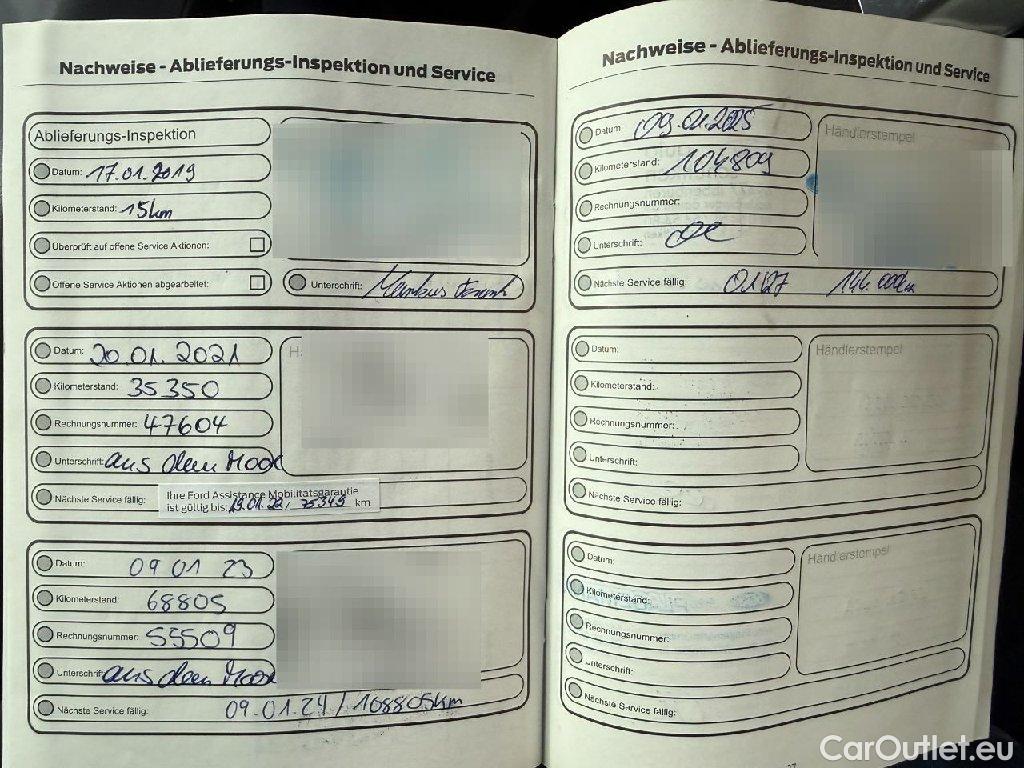 Nachweise - Ablieferungs-Inspektion und Service
Ablieferungs-Inspektion
Datum: 17.01.2019
Kilometerstand: 15km
Überprüft auf offene Service Aktionen:
Offene Service Aktionen abgearbeitet:
Unterschrift:
Datum: 20.01.2021
Kilometerstand: 35350
Rechnungsnummer: 47604
Unterschrift: aus dem Moor
Nächste Service fällig:
Ihre Ford Assistance Mobilitätsgarantie
ist gültig bis: 19.01.22 / 75349 km
Datum: 09 01 23
Kilometerstand: 68805
Rechnungsnummer: 55509
Unterschrift: aus dem Moor
Nächste Service fällig: 09.01.24 / 108805km
Nachweise - Ablieferungs-Inspektion und Service
Datum: 09.01.2025
Händlerstempel
Kilometerstand: 104809
Rechnungsnummer:
Unterschrift:
Nächste Service fällig: 01/27 144 000km
Datum:
Händlerstempel
Kilometerstand:
Rechnungsnummer:
Unterschrift:
Nächste Service fällig:
Datum:
Händlerstempel
Kilometerstand:
Rechnungsnummer:
Unterschrift:
Nächste Service fällig:
CarOutlet.eu